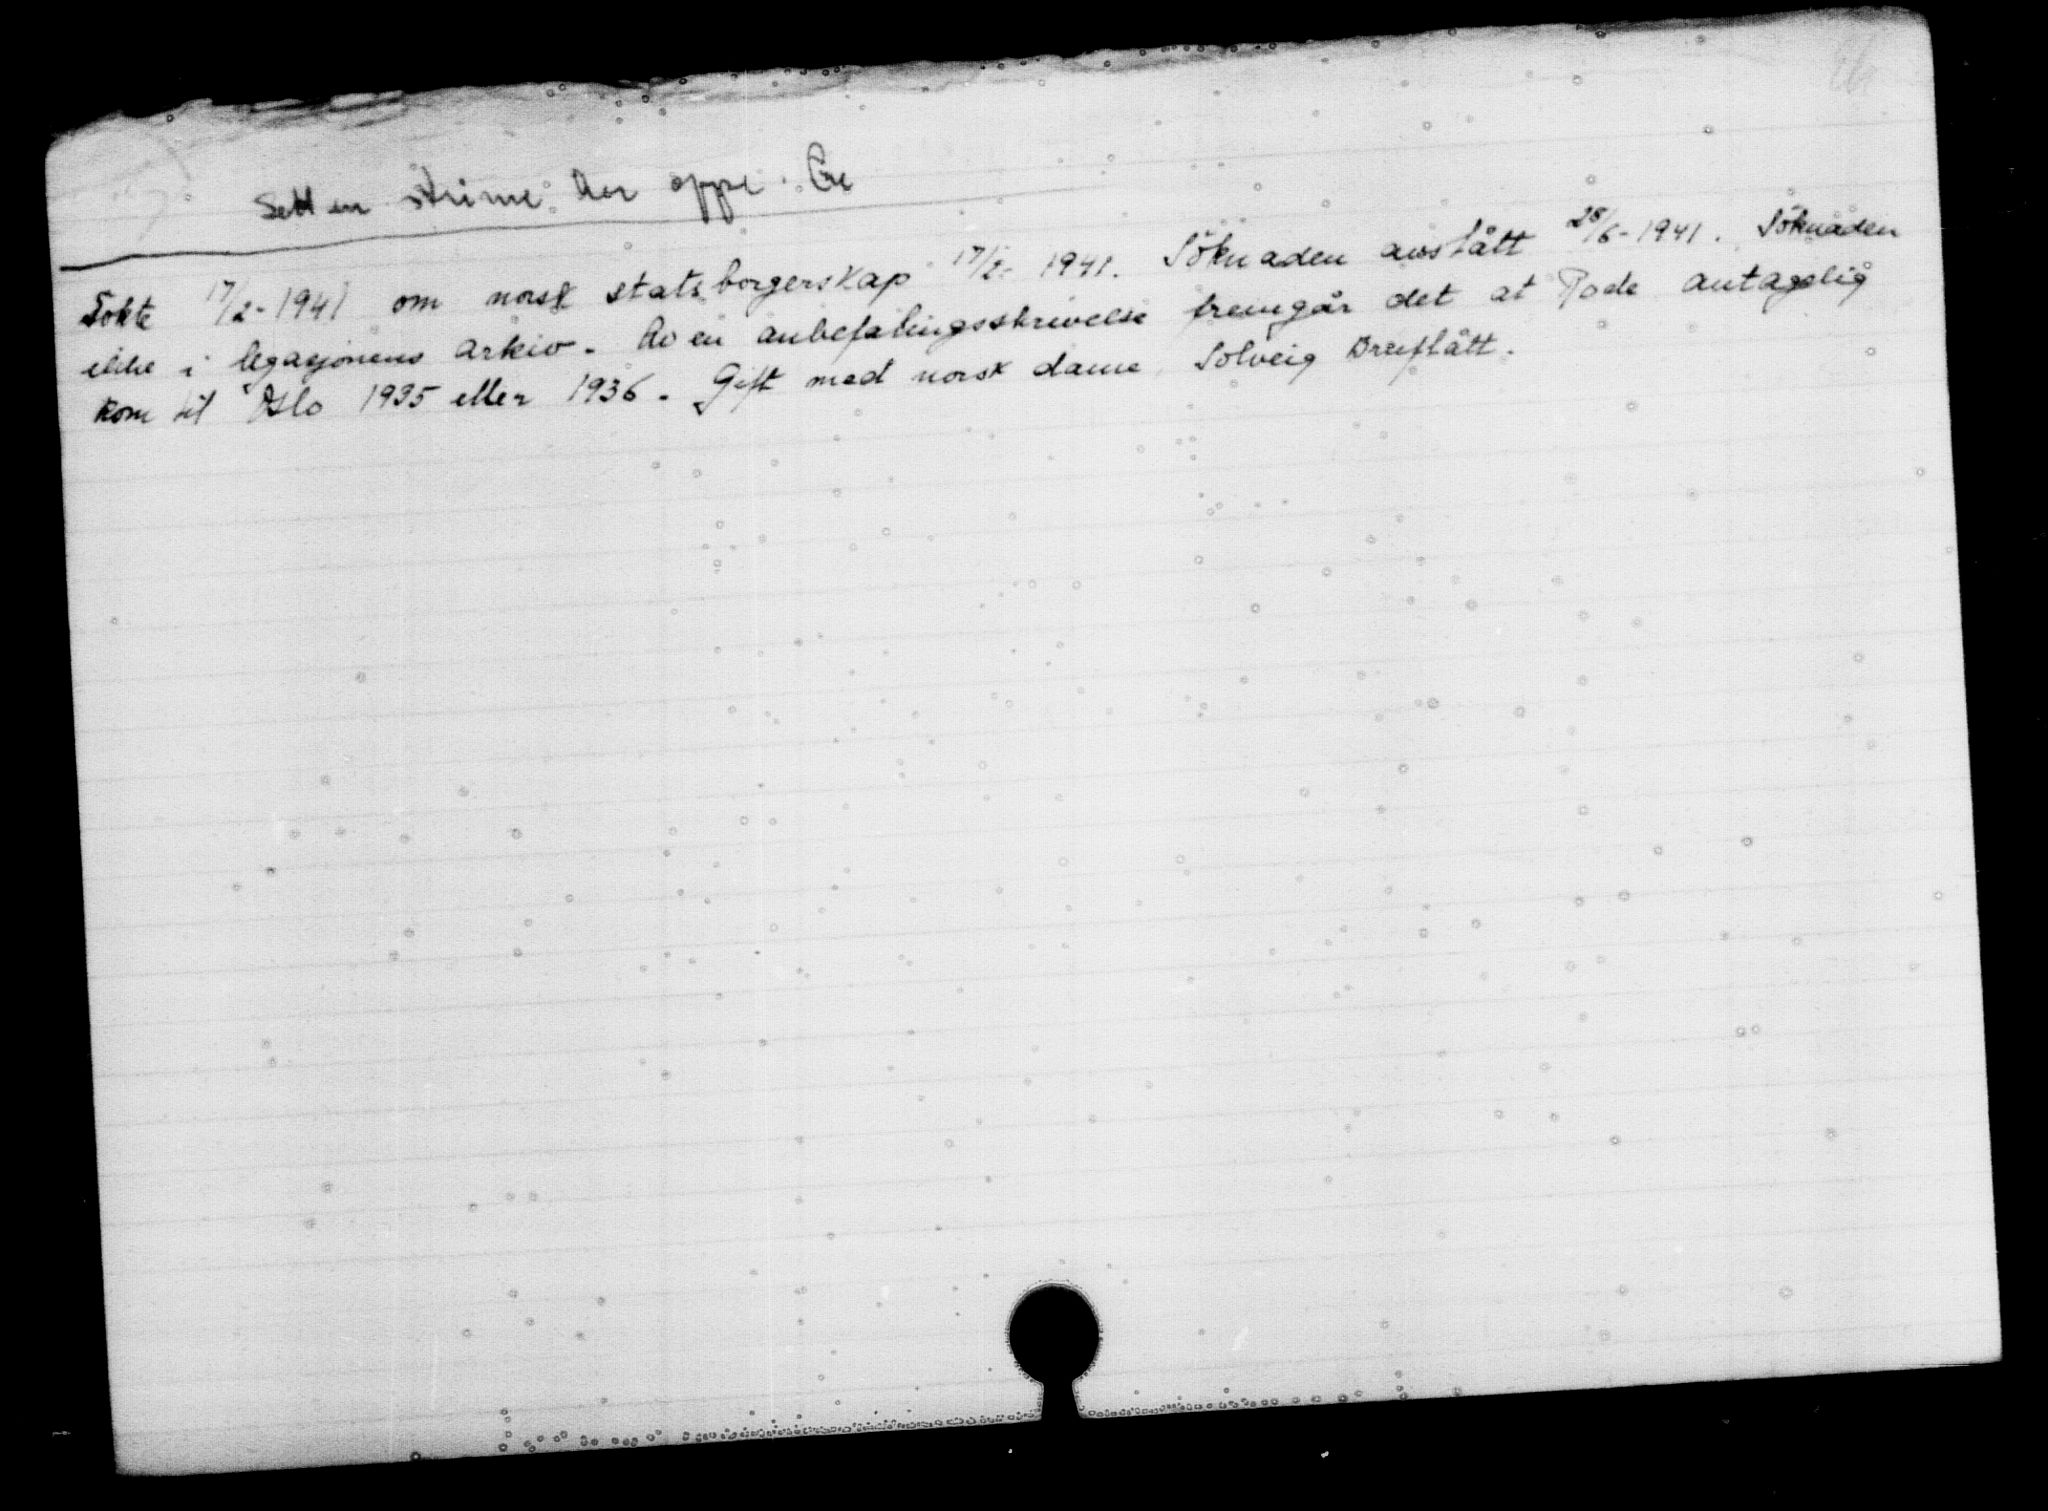 Sett en strime her oppe. Gre
Søkte 17/2-1941 om norsk statsborgerskap 17/2- 1941. Söknaden avslått 28/6-1941. Söknaden
ikke i legasjonens arkiv. Av en anbefalingsskrivelse fremgår det at Rode antagelig
kom til Oslo 1935 eller 1936. Gift med norsk dame, Solveig Breiflått.